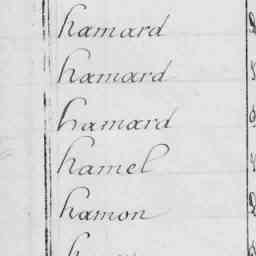 hamard
hamard
hamard
hamel
hamon